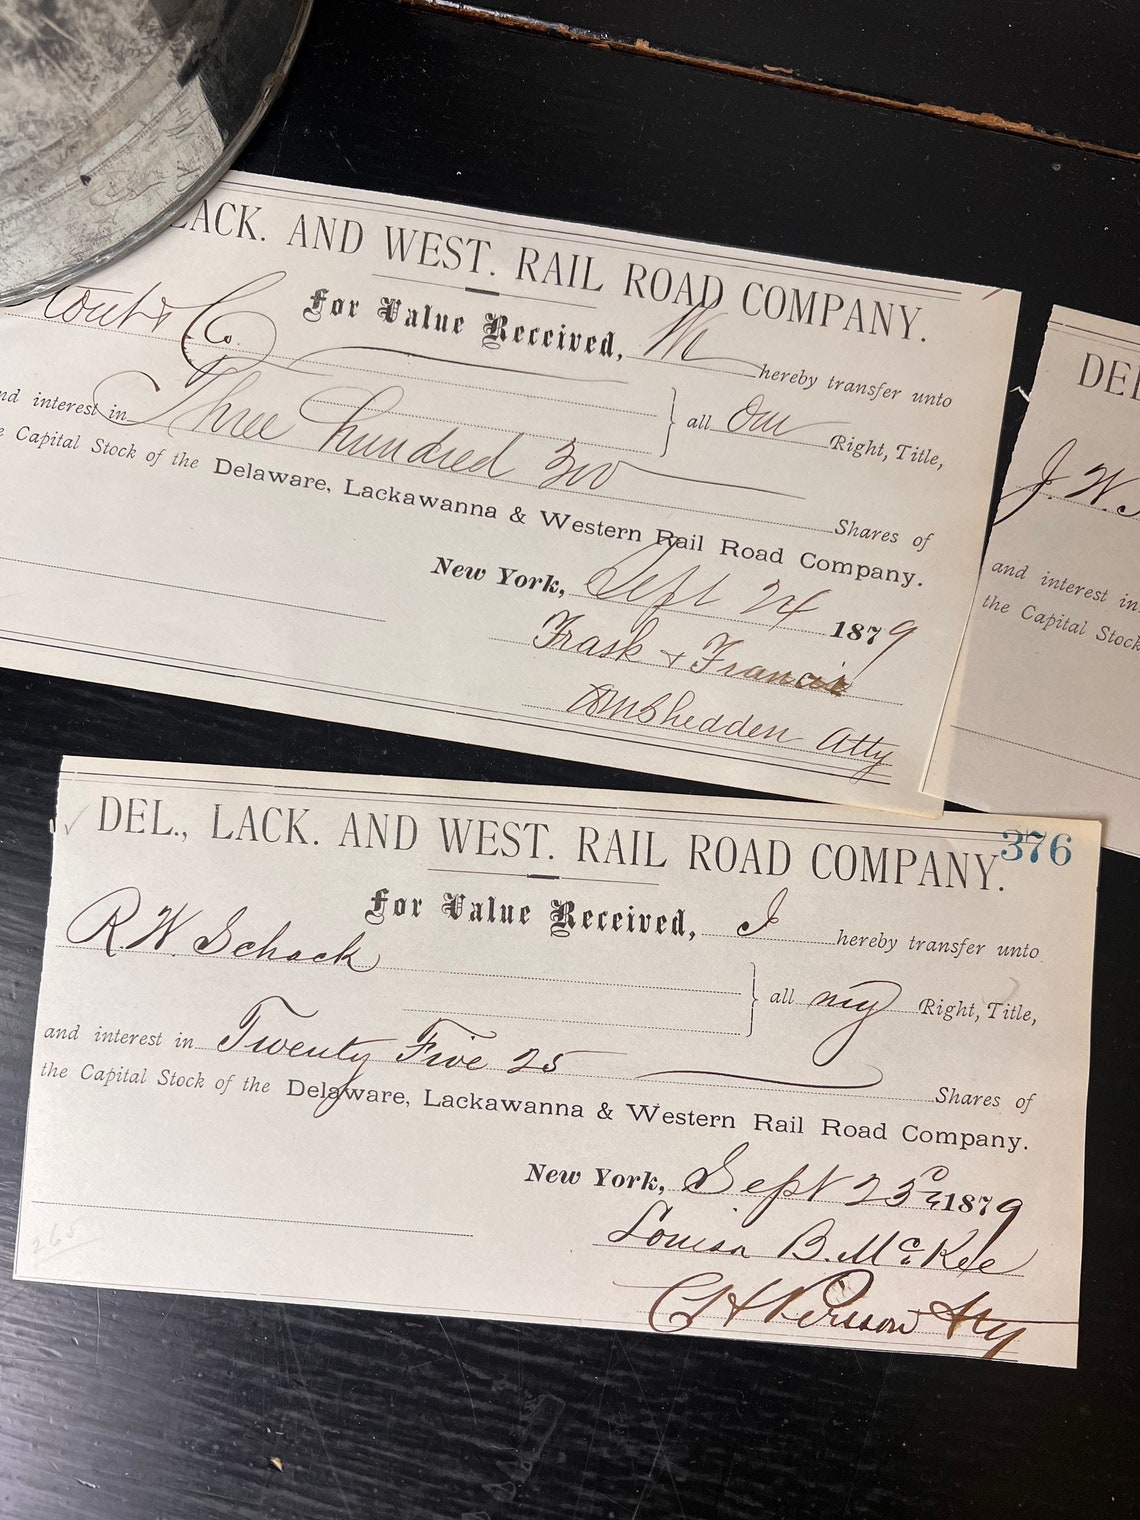 LACK. AND WEST. RAIL ROAD COMPANY.
For Value Received, We hereby transfer unto
& Co. all our Right, Title,
and interest in Three hundred 300 Shares of
Capital Stock of the Delaware, Lackawanna & Western Rail Road Company.
New York, Sept 24 1879
Trask & Francis
Shedden Atty
DEL
J. W.
and interest in
the Capital Stock
376
DEL., LACK. AND WEST. RAIL ROAD COMPANY.
For Value Received, I hereby transfer unto
R. W. Schack
all my Right, Title,
and interest in Twenty Five 25 Shares of
the Capital Stock of the Delaware, Lackawanna & Western Rail Road Company.
New York, Sept 23d 1879
Louisa B. McKee
265
Atty